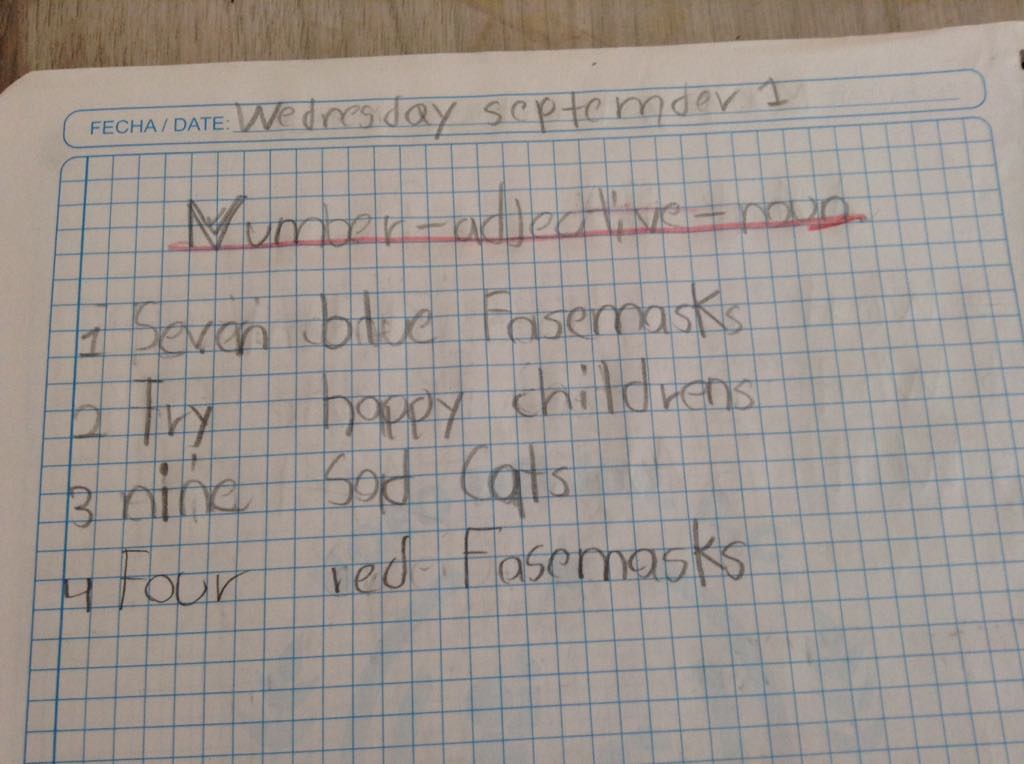 FECHA / DATE: Wednesday septemder 1
Number-adjective-noun
1 Seven blue Fasemasks
2 Try happy childrens
3 nine Sad Cats
4 Four red Fasemasks